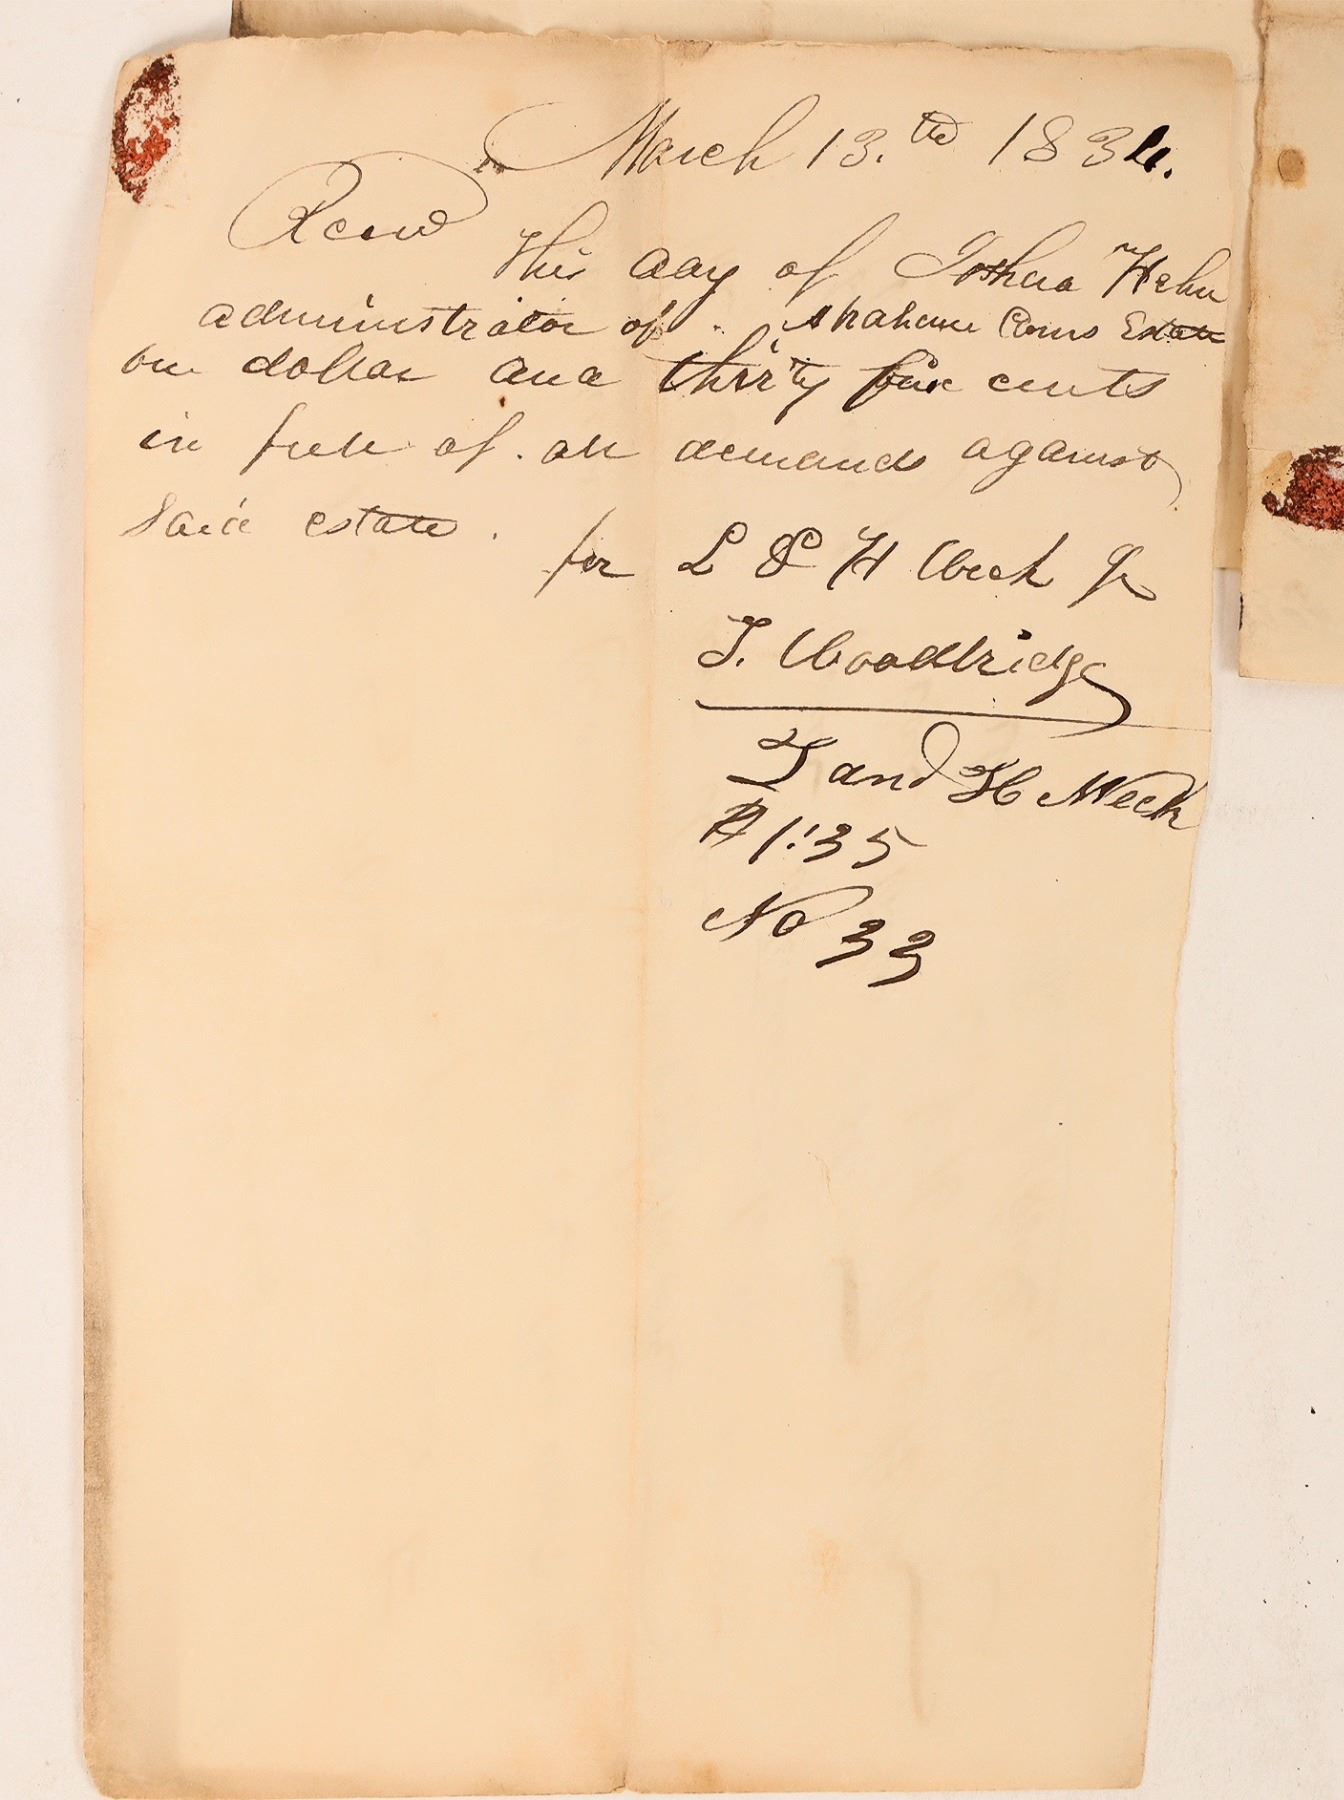 March 13.th 1834.
Recd
this day of Joshua Hehn
administrator of Abraham Corns Estate
one dollar and thirty five cents
in full of all demands against
said estate.
for L & H Week Jr
T. Woodbridge
T and H Meek
$1:35
No 33